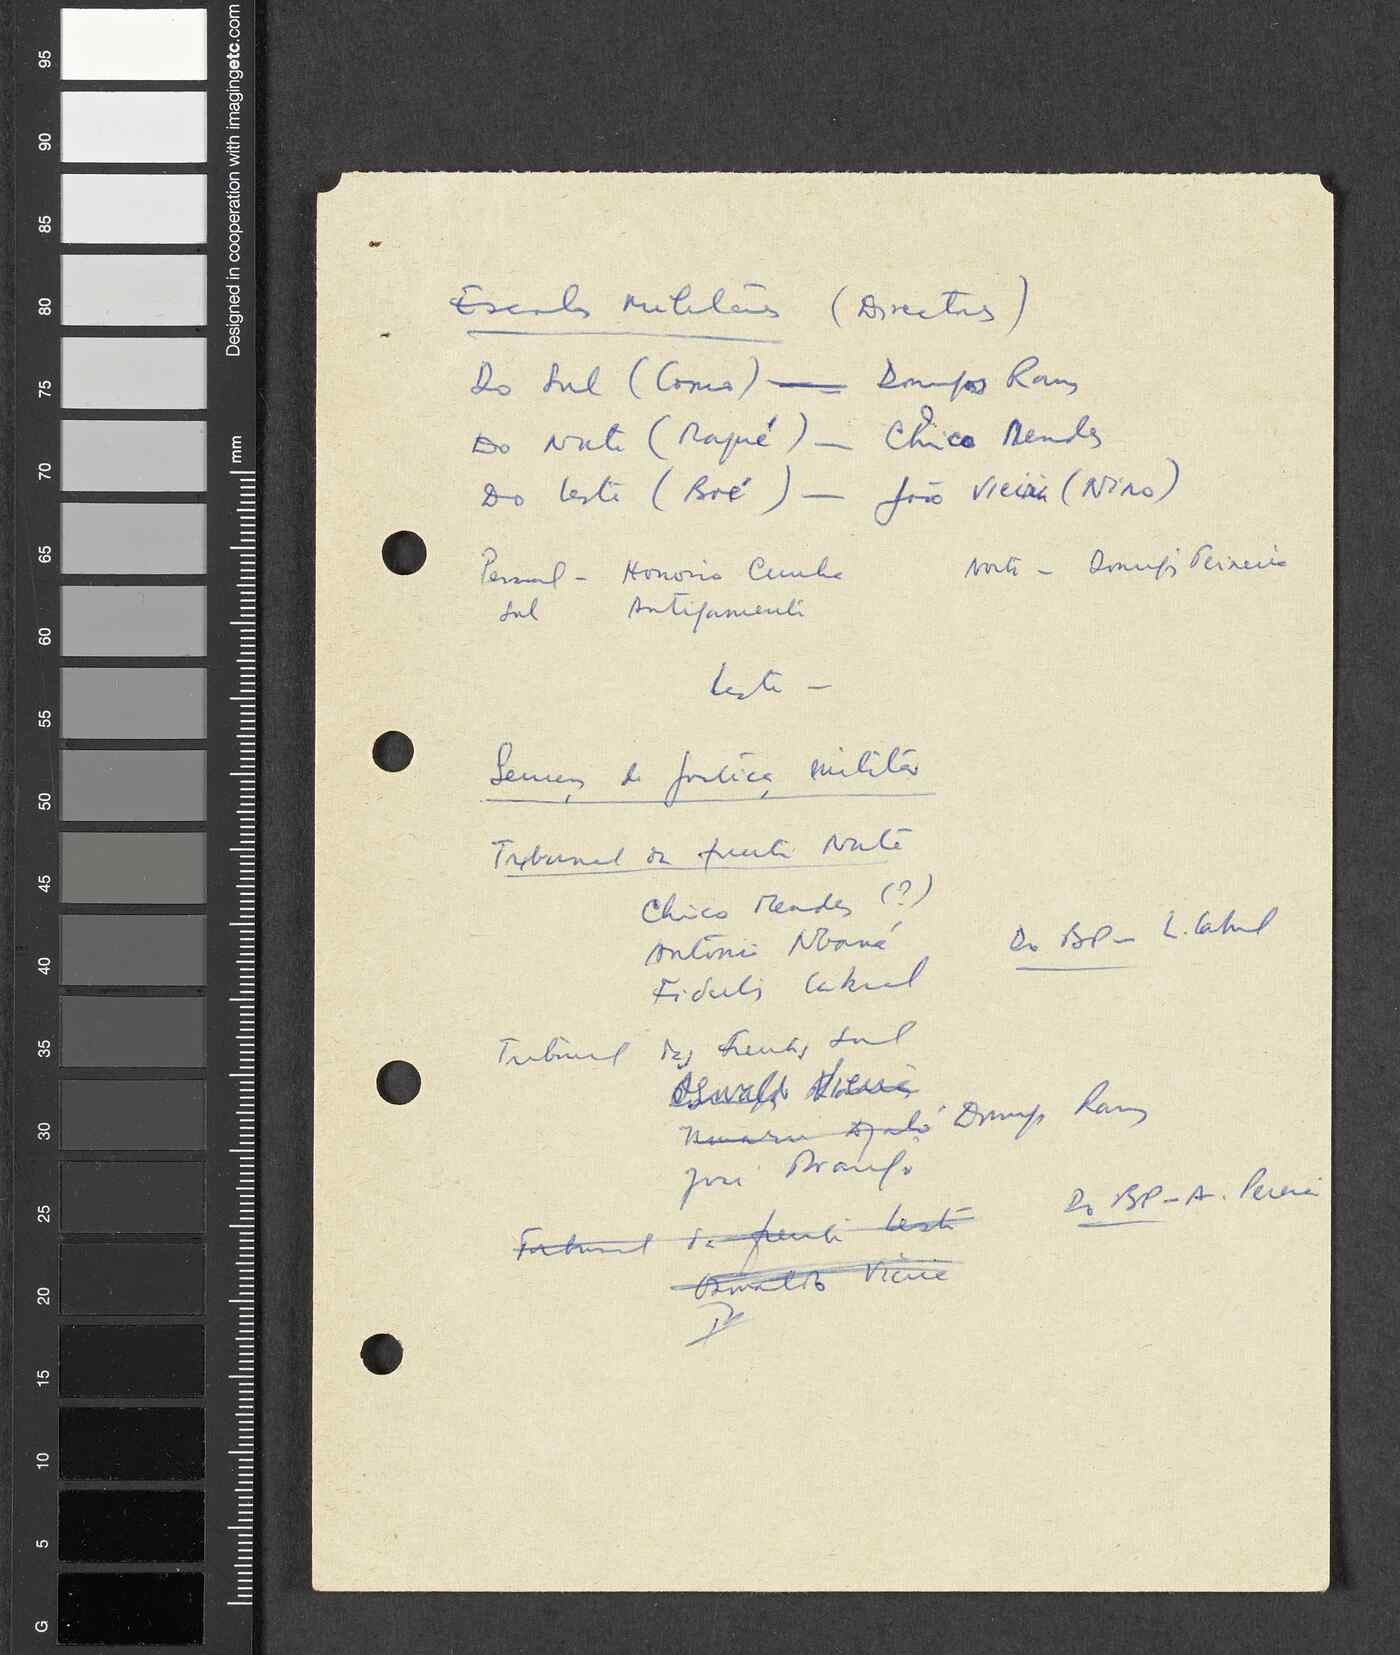 Escolas Militares (Directores)
Do Sul (Como) — Domingos Ramos
Do Norte (Maqué) — Chico Mendes
Do Leste (Boé) — João Vieira (Nino)
Pessoal - Honorio Cunha Norte - Domingos Teixeira
Sul Antifamenti
Leste -
Serviços de Justiça Militar
Tribunal da frente Norte
Chico Mendes (?)
António Mbaná
Fidelis Cabral
Do BP - L. Cabral
Tribunal das frentes Sul
Osvaldo Vieira
Domingos Ramos
José Araujo
Do BP - A. Pereira
Tribunal da frente Leste
Osvaldo Vieira
95
90
85
80
75
70
65
60
55
50
45
40
35
30
25
20
15
10
5
G
mm
Designed in cooperation with imagingetc.com